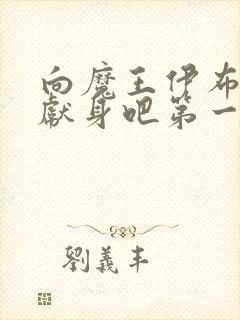 向魔王伊布
献身吧第一
劉義丰